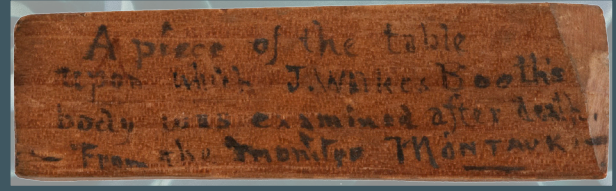 A piece of the table
upon which J. Wilkes Booth's
body was examined after death.
— From the monitor MONTAUK. —